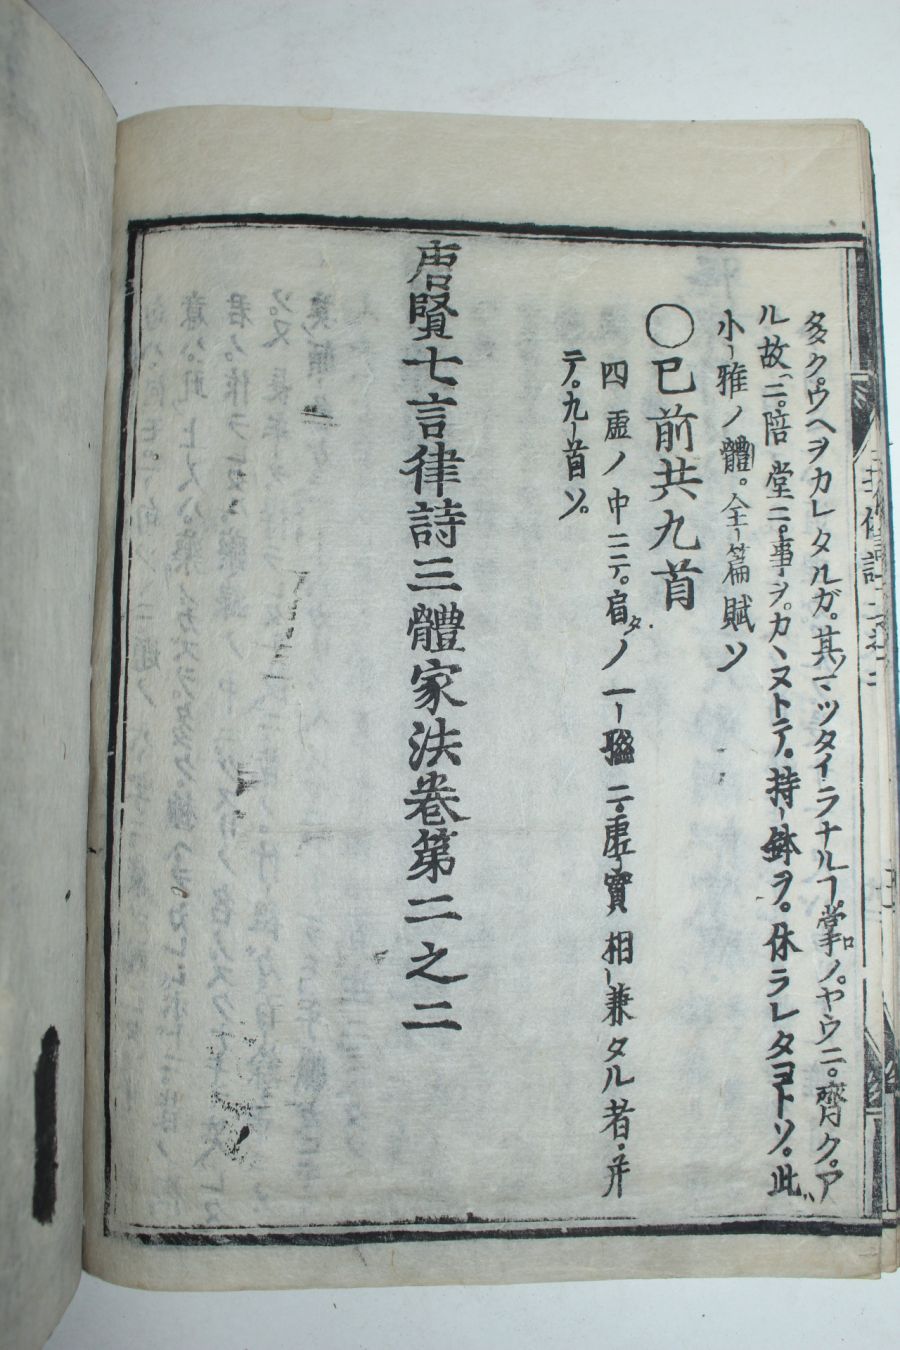 多ク。ウヘヲカレタルガ。其マツタイラナルフ。掌ノ。ヤウニ。齊ク。ア
ル故ニ。陪堂ニ。事ヲ。カヽヌトテ。持鉢ヲ。休ラレタヿトソ。此
小雅ノ體。全篇賦ソ
〇已前共九首
四虚ノ中ニテ。ノ一聯ニ。虚實相兼タル者。并
テ。九首ソ。
唐賢七言律詩三體家法卷第二之二